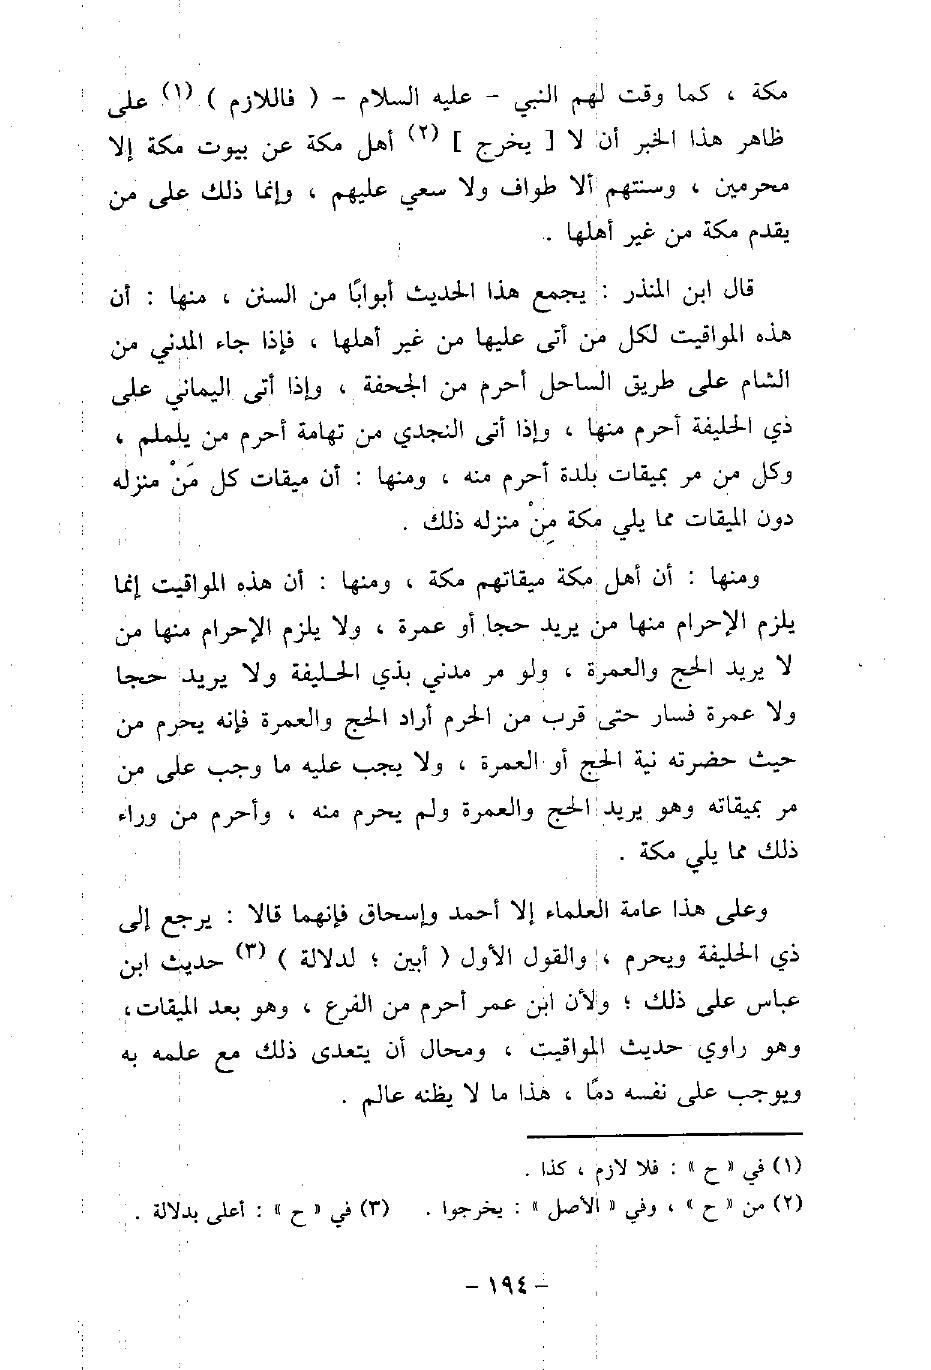 مكة ، كما وقت لهم النبي - عليه السلام - ( فاللازم ) (١) على
ظاهر هذا الخبر أن لا [ يخرج ] (٢) أهل مكة عن بيوت مكة إلا
محرمين ، وسنتهم ألا طواف ولا سعي عليهم ، وإنما ذلك على من
يقدم مكة من غير أهلها .
قال ابن المنذر : يجمع هذا الحديث أبوابًا من السنن ، منها : أن
هذه المواقيت لكل من أتى عليها من غير أهلها ، فإذا جاء المدني من
الشام على طريق الساحل أحرم من الجحفة ، وإذا أتى اليماني على
ذي الحليفة أحرم منها ، وإذا أتى النجدي من تهامة أحرم من يلملم ،
وكل من مر بميقات بلدة أحرم منه ، ومنها : أن ميقات كل مَنْ منزله
دون الميقات مما يلي مكة مِنْ منزله ذلك .
ومنها : أن أهل مكة ميقاتهم مكة ، ومنها : أن هذه المواقيت إنما
يلزم الإحرام منها من يريد حجا أو عمرة ، ولا يلزم الإحرام منها من
لا يريد الحج والعمرة ، ولو مر مدني بذي الحليفة ولا يريد حجا
ولا عمرة فسار حتى قرب من الحرم أراد الحج والعمرة فإنه يحرم من
حيث حضرته نية الحج أو العمرة ، ولا يجب عليه ما وجب على من
مر بميقاته وهو يريد الحج والعمرة ولم يحرم منه ، وأحرم من وراء
ذلك مما يلي مكة .
وعلى هذا عامة العلماء إلا أحمد وإسحاق فإنهما قالا : يرجع إلى
ذي الحليفة ويحرم ، والقول الأول ( أبين ؛ لدلالة ) (٣) حديث ابن
عباس على ذلك ؛ ولأن ابن عمر أحرم من الفرع ، وهو بعد الميقات،
وهو راوي حديث المواقيت ، ومحال أن يتعدى ذلك مع علمه به
ويوجب على نفسه دمًا ، هذا ما لا يظنه عالم .
(١) في « ح » : فلا لازم ، كذا .
(٢) من « ح » ، وفي « الأصل » : يخرجوا . (٣) في « ح » : أعلى بدلالة .
- ١٩٤ -